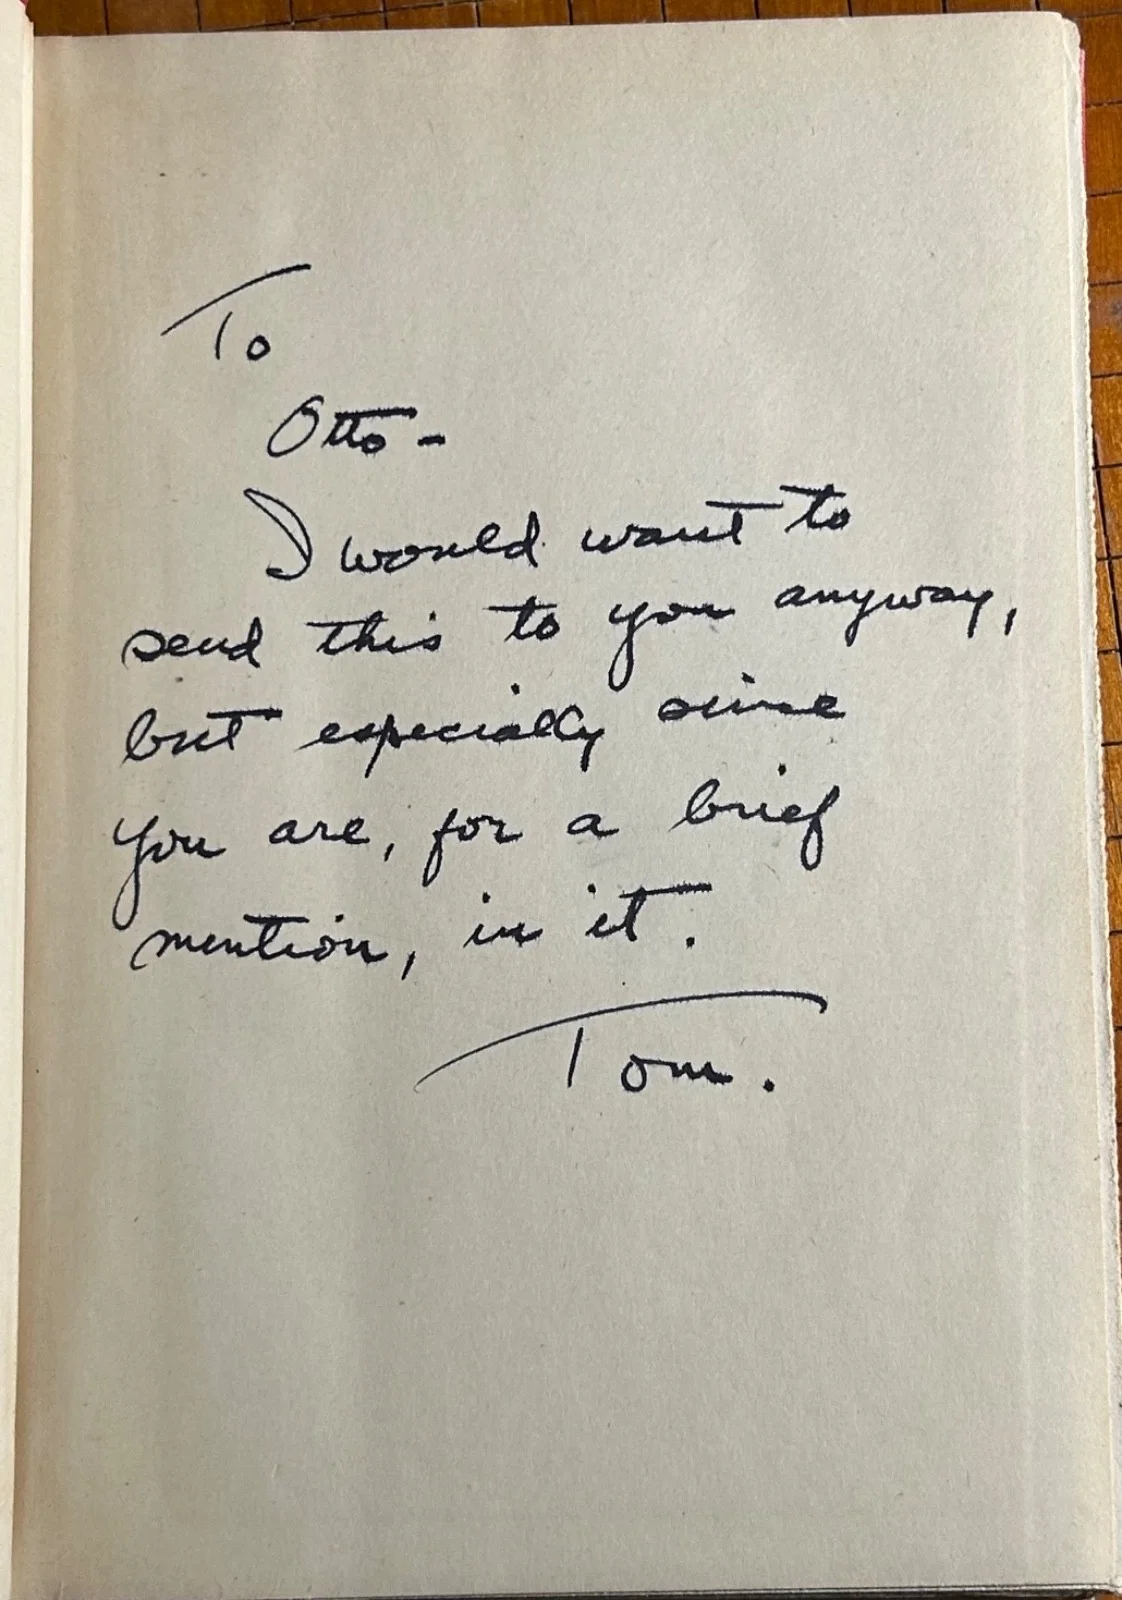 To
Otto -
I would want to
send this to you anyway,
but especially since
you are, for a brief
mention, in it.
Tom.